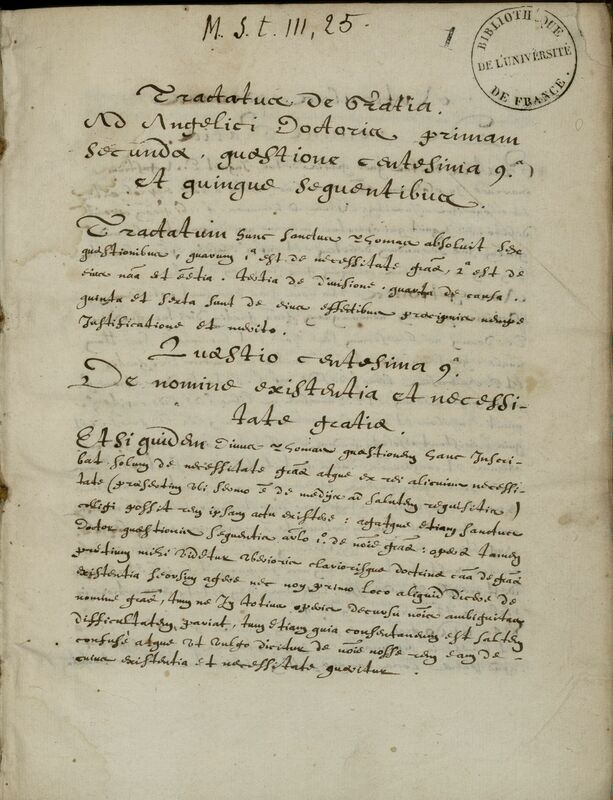 M. S. t. III, 25.
1
BIBLIOTHÈQUE
DE L'UNIVERSITÉ
DE FRANCE.
Tractatus de Gratia.
Ad Angelici Doctoris primam
secundæ, quæstione centesima 9.ª
et quinque sequentibus.
Tractatum hunc sanctus Thomas absoluit sex
quæstionibus, quarum 1ª est de necessitate græ, 2ª est de
eius nãa et eẽtia. tertia de diuisione. quarta de causa.
quinta et sexta sunt de eius effectibus præcipuis nempe
Iustificatione et merito.
Quæstio centesima 9.ª
De nomine existentia et necessi-
tate gratiæ.
Et si quidem Diuus Thomas quæstionem hanc Inscri-
bat solum de necessitate græ atque ex rei alicuius necessi-
tate (præsertim ubi sermo ẽ de medijs ad salutem requisitis)
colligi possit rem ipsam actu existere: agatque etiam sanctus
doctor quæstionis sequentis artlo 1º. de nõie græ: operæ tamen
prætium mihi videtur uberioris clariorisque doctrinæ cãa de græ
existentia seorsim agere nec non primo loco aliquid dicere de
nomine græ, tum ne In totius operis decursu nõis ambiguitas
difficultatem pariat, tum etiam quia consentaneum est saltem
confusè atque ut vulgo dicitur de nõie nosse rem eam de
cuius existentia et necessitate quæritur.